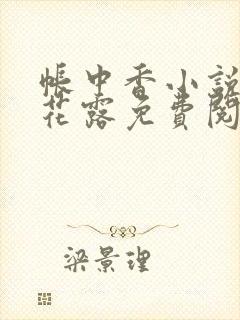 帳中香小說
花露免費閱
梁景理